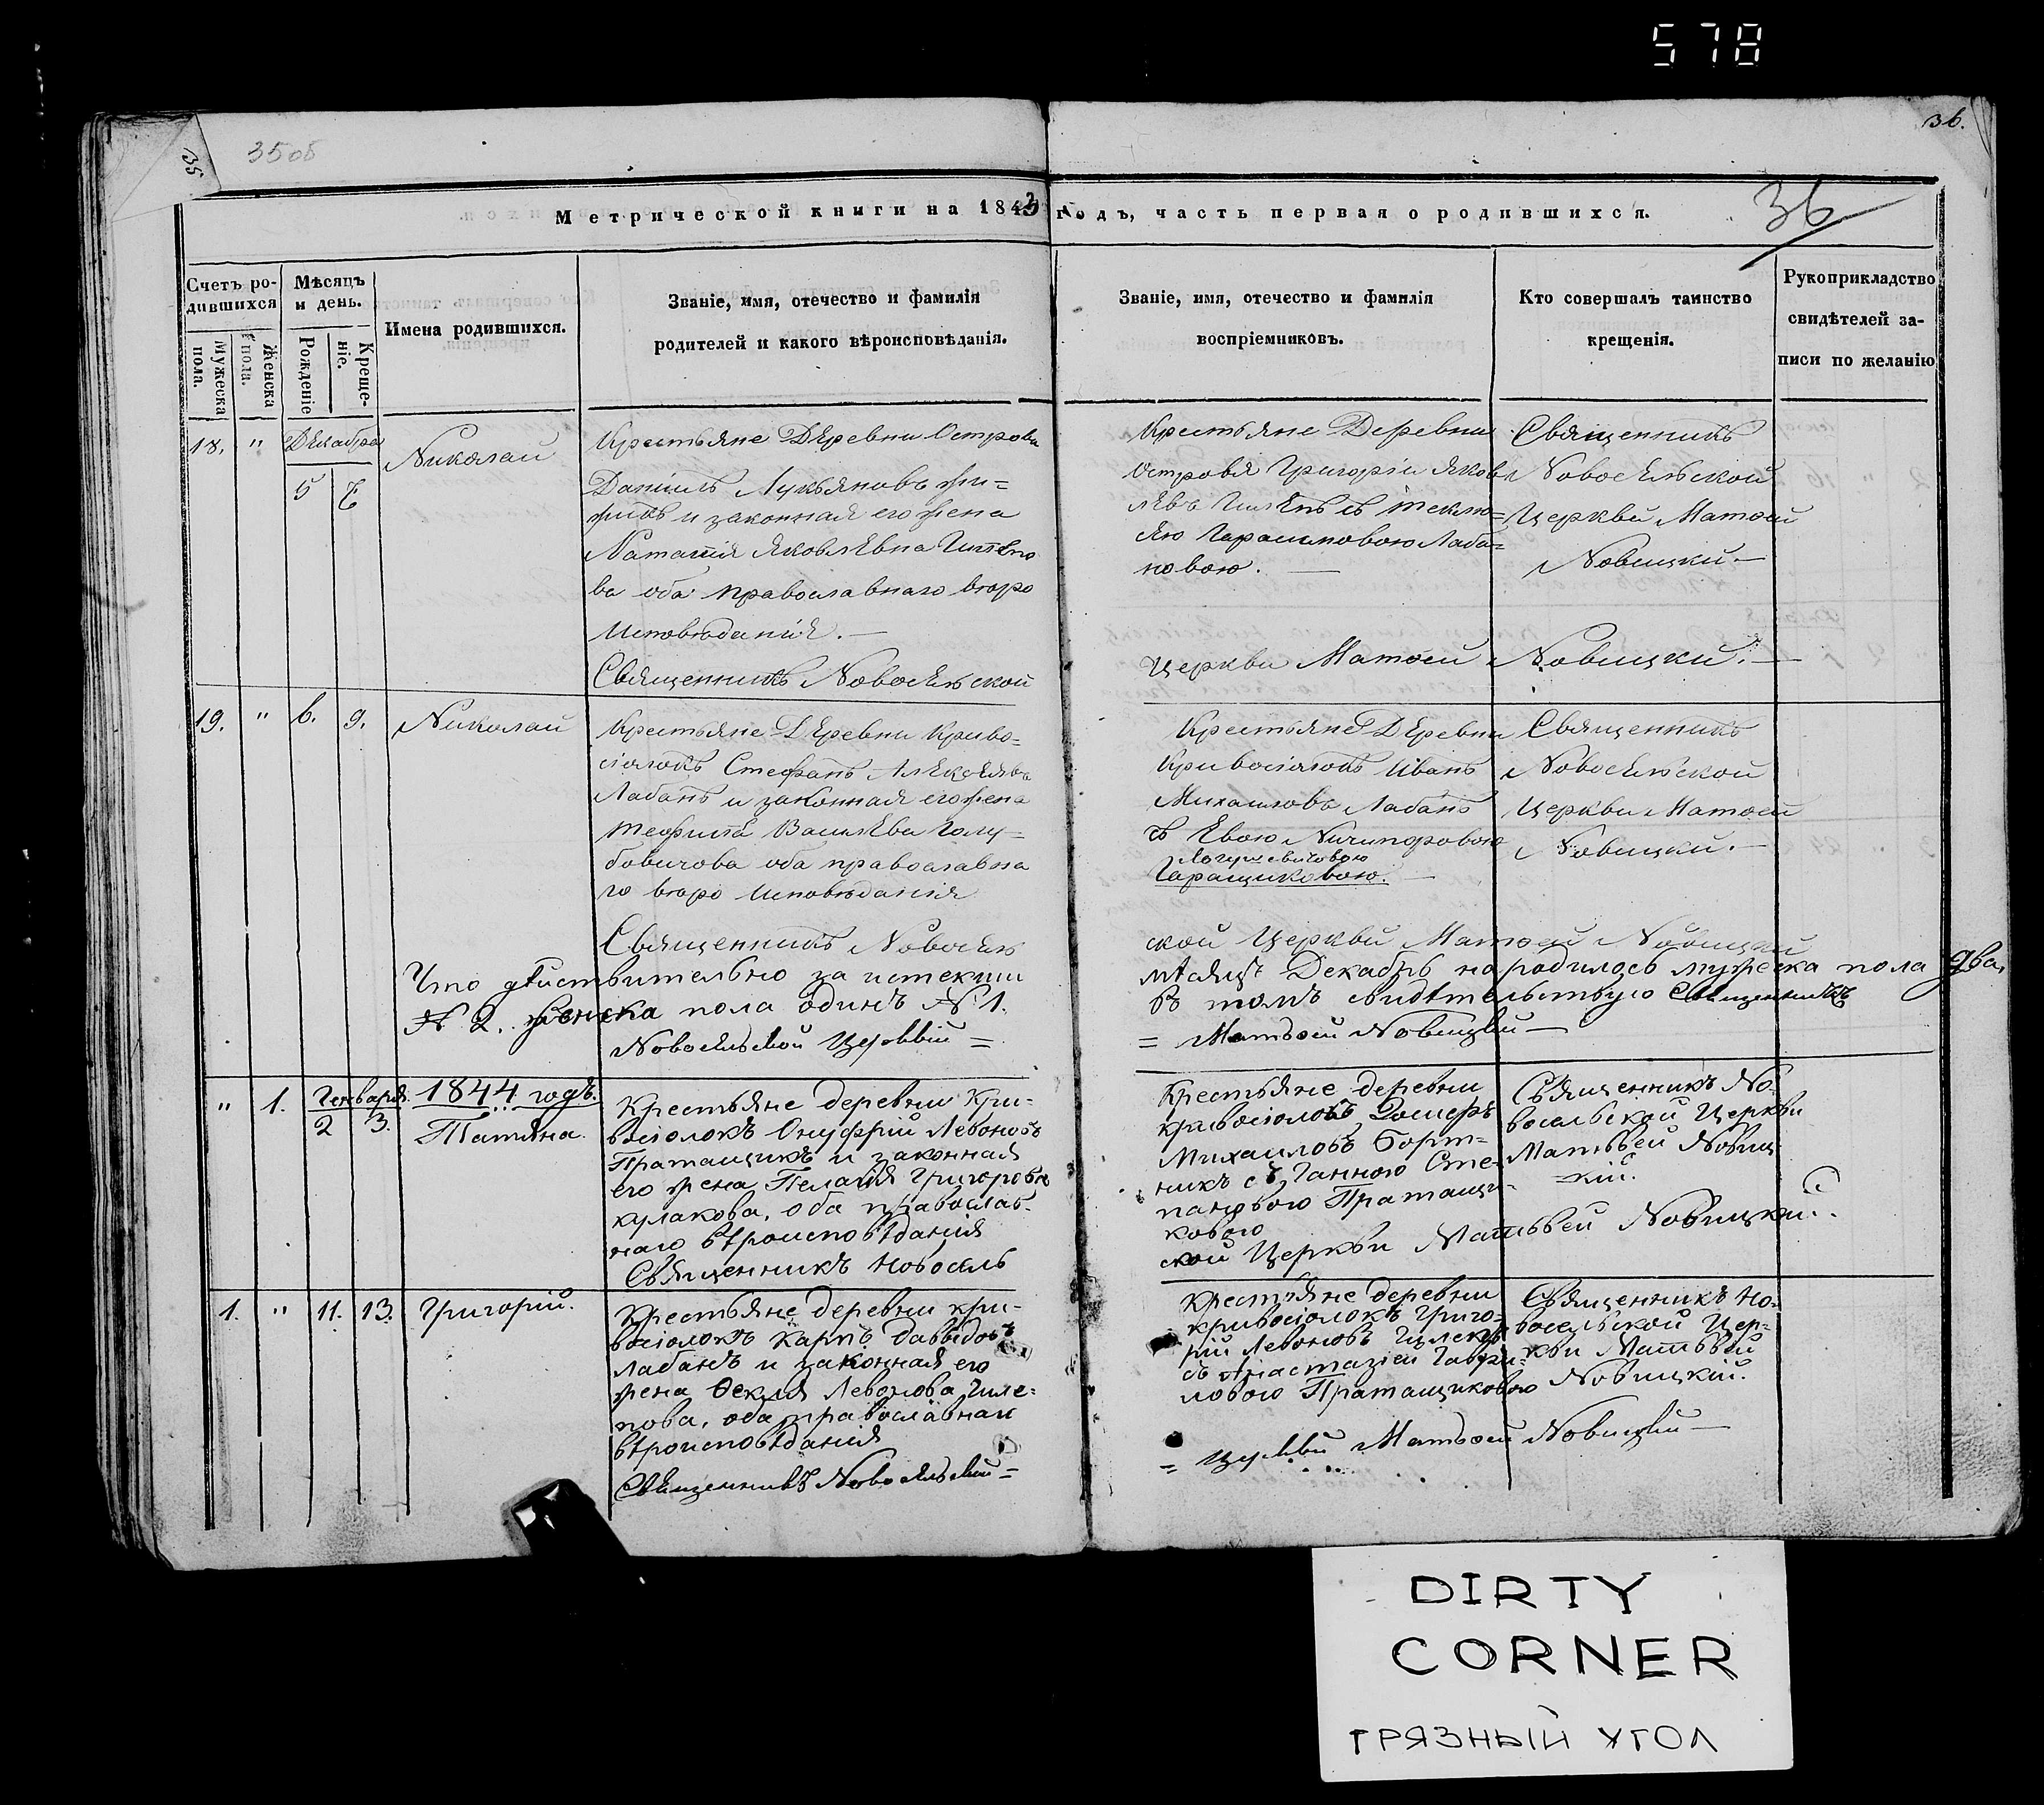 578
35
35об
36.
36
Метрической книги на 1843 годъ, часть первая о родившихся.
Счетъ ро-
дившихся
Мужеска пола.
Женска пола.
Мѣсяцъ
и день.
Рожденіе
Креще-
ніе.
Имена родившихся.
Званіе, имя, отечество и фамилія
родителей и какого вѣроисповѣданія.
Званіе, имя, отечество и фамилія
воспріемниковъ.
Кто совершалъ таинство
крещенія.
Рукоприкладство
свидѣтелей за-
писи по желанію
18. "
Декабра
5
Николай
Крестьяне Деревни Острова
Даніилъ Лукьяновъ
и законная его жена
Наталія Яковлевна
ва оба православнаго вѣро
исповѣданія.
Священникъ Новосельской
Крестьяне Деревни
Острова Григорій Яков
левъ съ Текл
ею Гарасимовою Лаба=
новою.
Священникъ
Новосельской
Церкви Матѳей
Новицкій.
Церкви Матѳей Новицкій.
19. " 6. 9. Николай
Крестьяне Деревни Криво=
сіолокъ Стефанъ Алексеевъ
Лабанъ и законная его жена
Василева Голу=
бовичова оба православна
го вѣро исповѣданія
Священникъ Новоселъ
Крестьяне Деревни
Кривосіолокъ Иванъ
Михаиловъ Лабанъ
съ Евою Ничипоровою
Гаращиковою.
Священникъ
Новосельской
Церкви Матѳей
Новицкій.
ской Церкви Матѳей Новицкій
Что дѣиствительно за истекши
мѣсяцъ Декабрь народилось мужеска пола два,
№ 2. женска пола одинъ № 1.
В томъ свидѣтельствую Священникъ
Новосельской Церкви =
= Матѳей Новицкій
" 1. Генваря. 1844 годъ.
2 3. Татяна.
Крестьяне деревни Кри-
восіолокъ Онуфрій Левоновъ
Пратащикъ и законная
его жена Пелагія Григорова
кулакова, оба православ-
наго вѣроисповѣданія
Священникъ Новосель
Крестьяне деревни
кривосіолокъ Іосифъ
Михаиловъ Борт-
никъ съ Ганною Сте-
пановою Пратащи-
ковою
Священникъ Но-
восельской Церкви
Матьвей Новиц-
кій.
ской Церкви Матьвей Новицкій.
1. " 11. 13. Григорій.
Крестьяне деревни кри-
восіолокъ карпъ Давыдовъ
лабанъ и законная его
жена Ѳекла Левонова Гиле-
пова, оба православнаи
вѣроисповѣданія
Священникъ Новосельской =
Крестьяне деревни
кривосіолокъ Григо-
рій Левоновъ
съ Анастазіей Гаври-
ловою Пратащиковою
Священникъ Но-
восельской Цер-
кви Матьвей
Новицкій.
= Церкви Матѳей Новицкій
DIRTY
CORNER
ГРЯЗНЫЙ УГОЛ